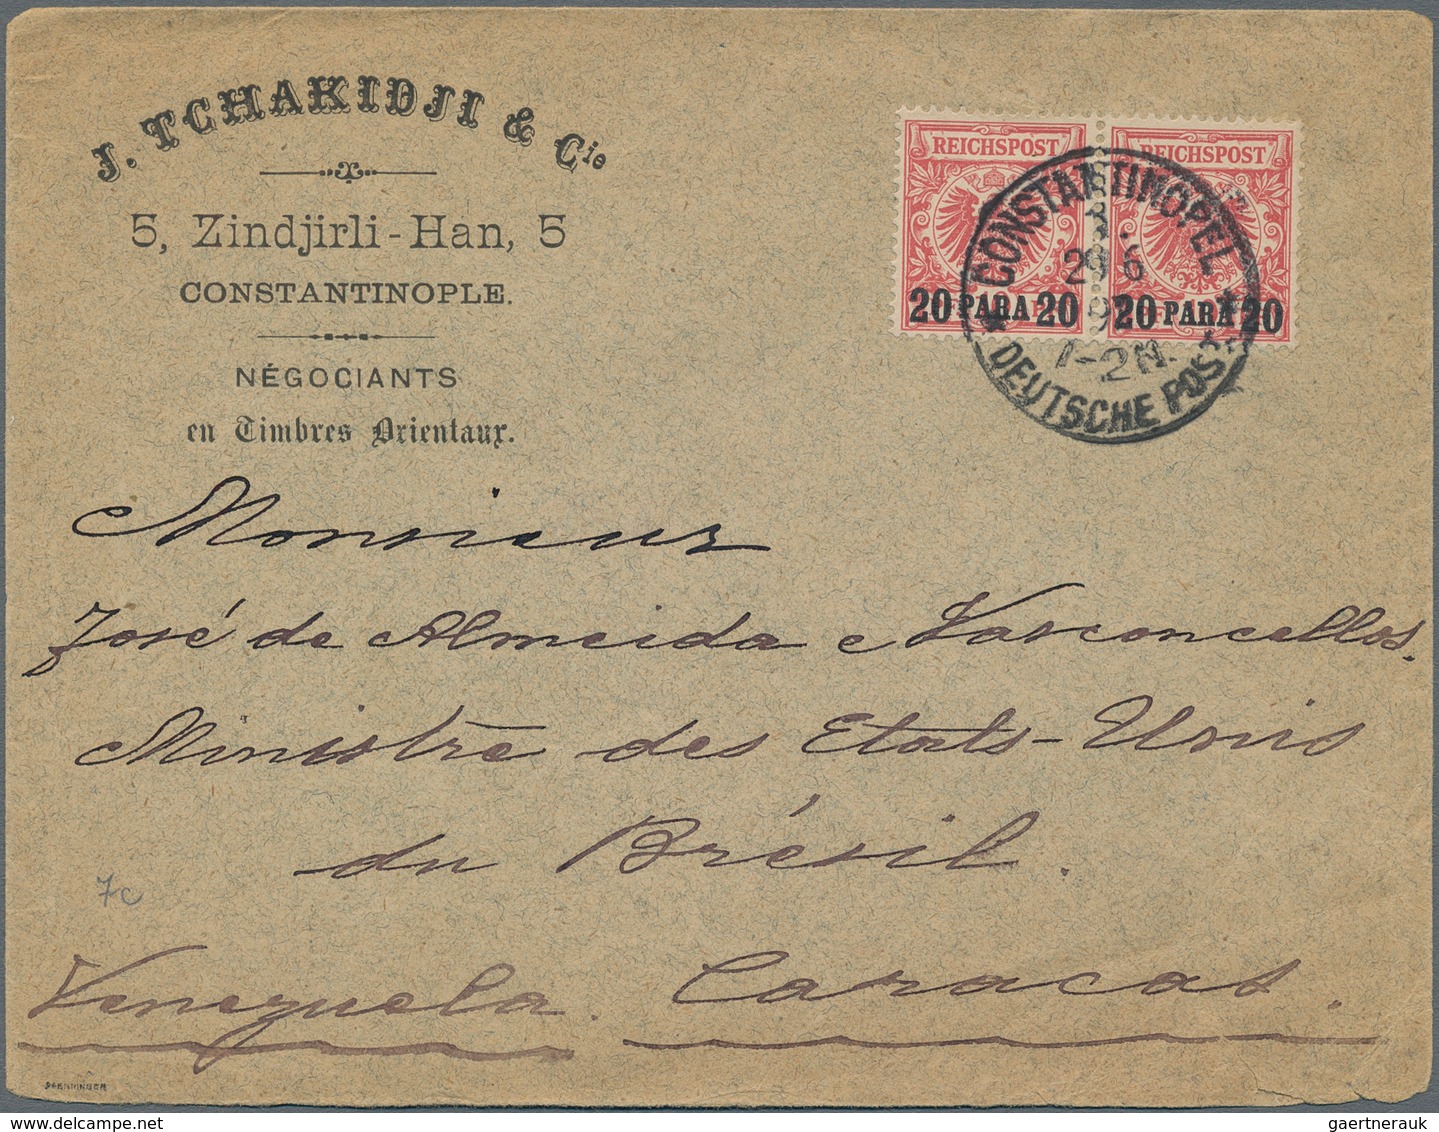 J. TCHAKIDJI & Cie
5, Zindjirli-Han, 5
CONSTANTINOPLE.
NÉGOCIANTS
en Timbres Orientaux.
REICHSPOST
REICHSPOST
20 PARA 20
20 PARA 20
* CONSTANTINOPEL *
29 6
1-2N.
DEUTSCHE POST.
Monsieur
José de Almeida e Vasconcellos.
Ministre des Etats-Unis
du Brésil.
7c
Venezuela. Caracas.
www.delcampe.net
gaertnerauk